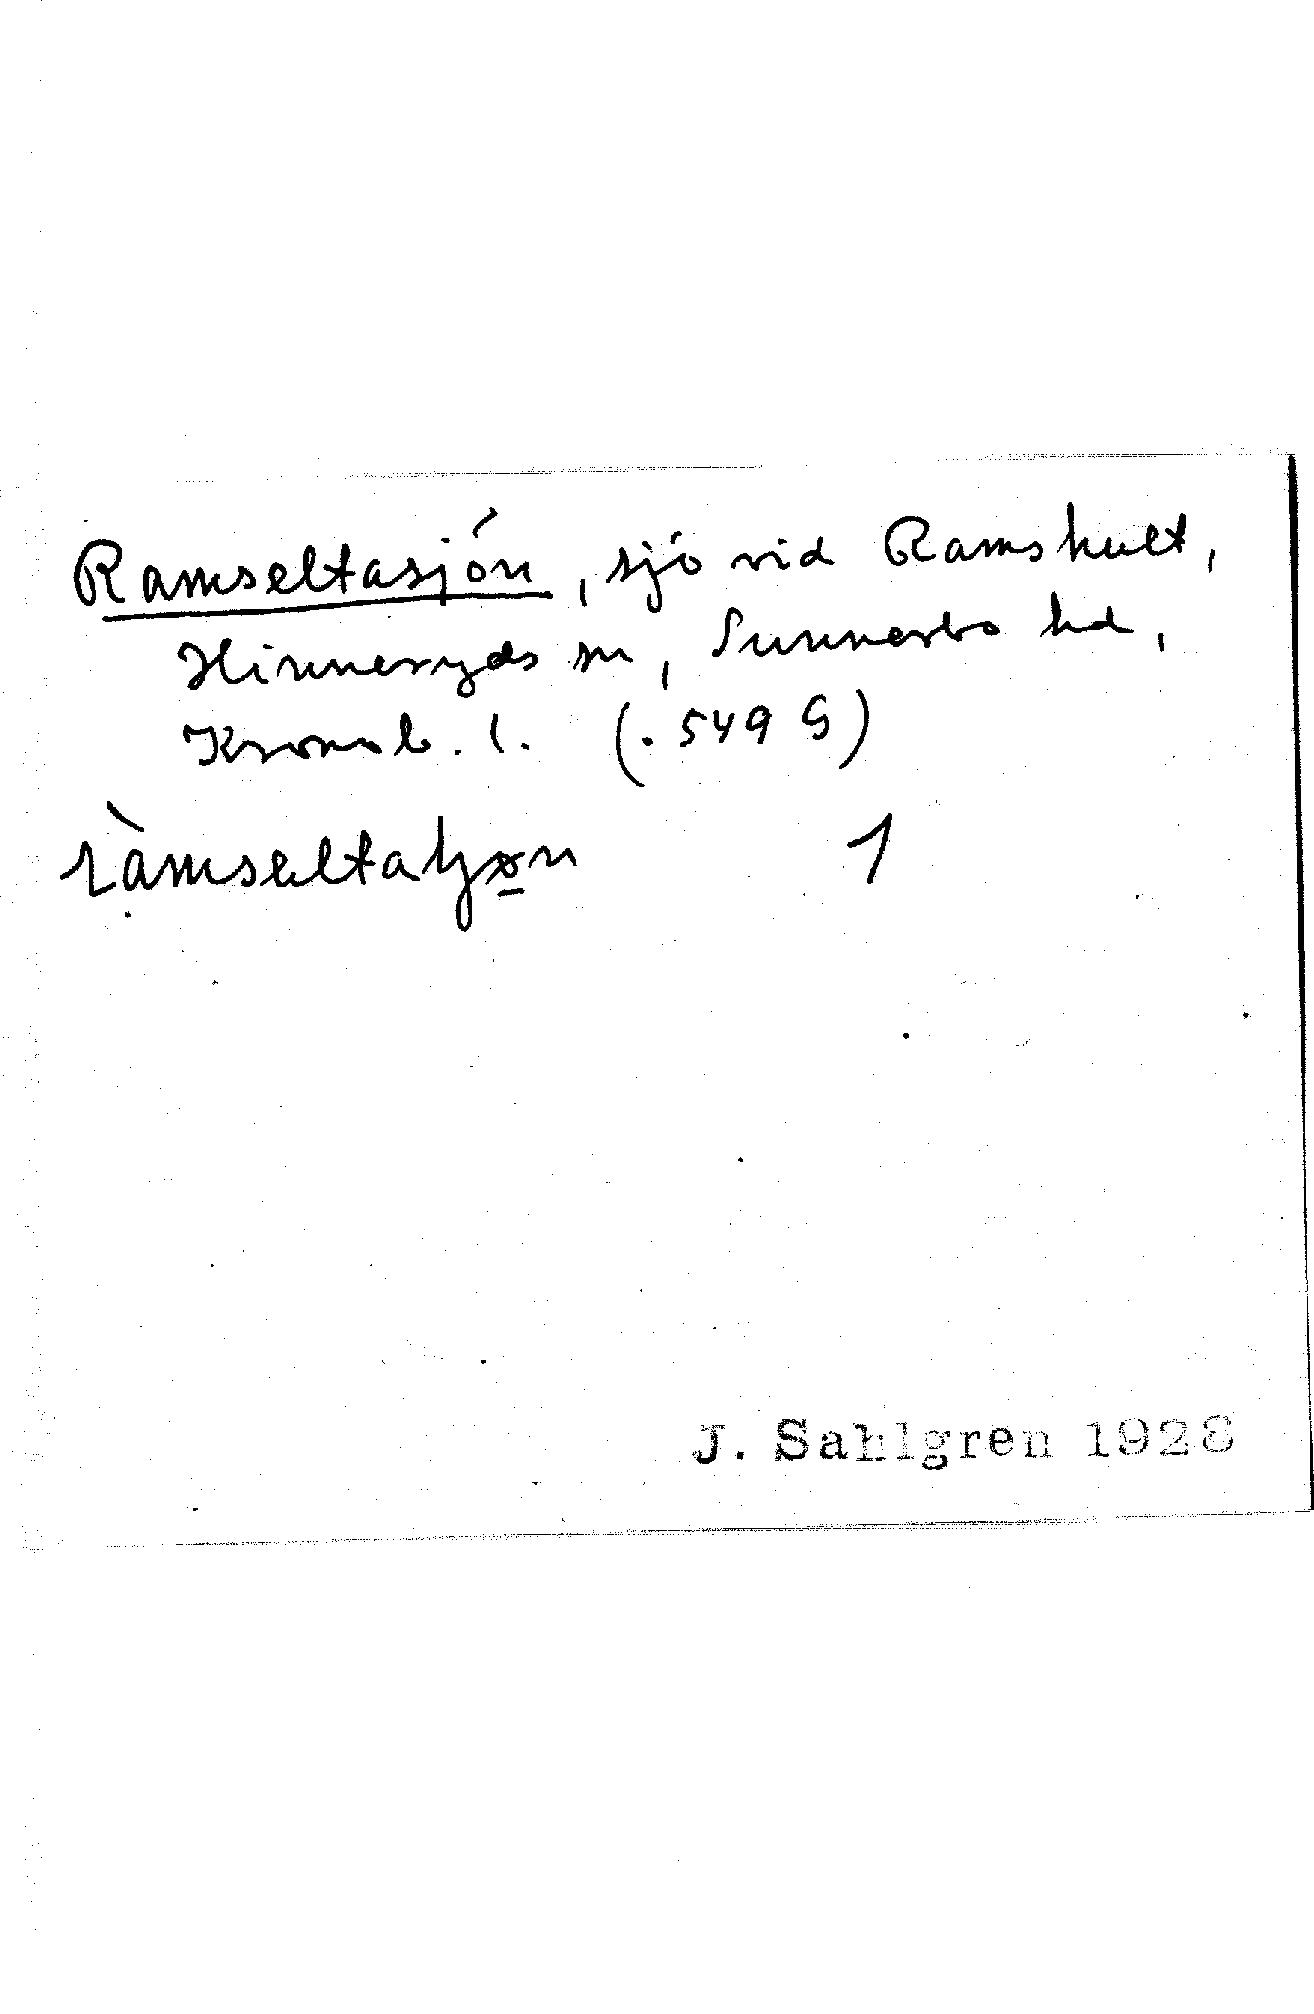 Ramseltasjón, sjö vid Ramshult,
Hinneryds sn, Sunnerbo hd,
Kronob. l. (. 549 G)
1
J. Sahlgren 1928